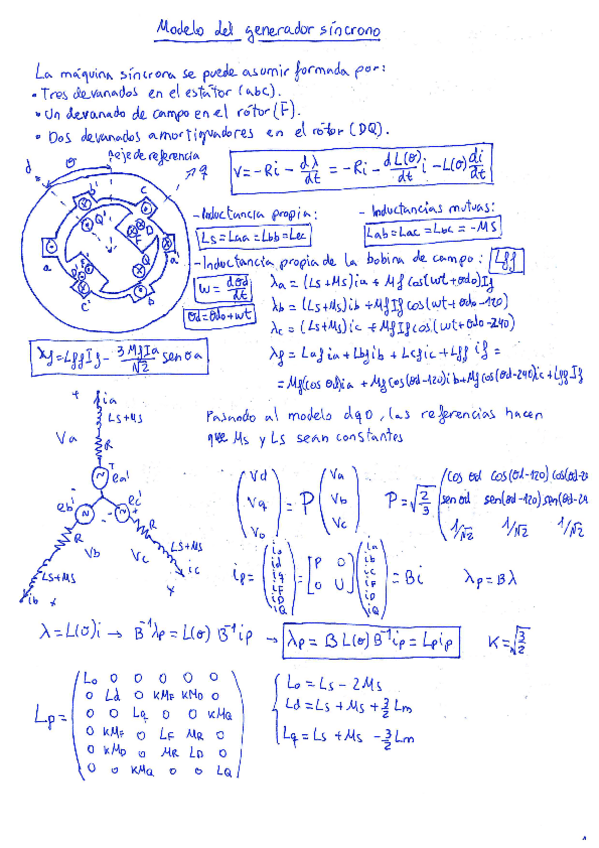 Modelo del generador síncrono
La máquina síncrona se puede asumir formada por:
• Tres devanados en el estátor (abc).
• Un devanado de campo en el rótor (F).
• Dos devanados amortiguadores en el rótor (DQ).
eje de referencia
d θ q
V = -Ri - dλ/dt = -Ri - dL(θ)/dt i - L(θ) di/dt
- Inductancia propia:
Ls = Laa = Lbb = Lcc
- Inductancias mutuas:
Lab = Lac = Lbc = -MS
- Inductancia propia de la bobina de campo: Lff
w = dθd/dt
θd = θdo + wt
λa = (Ls+Ms)ia + Mf cos(wt+θdo)If
λb = (Ls+Ms)ib + MfIf cos(wt+θdo-120)
λc = (Ls+Ms)ic + MfIf cos(wt+θdo-240)
λf = LffIf - 3MfIa/√2 sen θa
λf = Lafia + Lbfib + Lcfic + Lff if =
= Mf(cos θd)ia + Mf cos(θd-120)ib + Mf cos(θd-240)ic + LffIf
ia
LS+MS
Va
R
ea'
eb' ec'
R R
Vb Vc
LS+MS LS+MS
ib ic
Pasando al modelo dq0, las referencias hacen
que Ms y Ls sean constantes
(Vd Vq Vo) = P (Va Vb Vc)
P = √2/3 (cos θd cos(θd-120) cos(θd-2
sen θd sen(θd-120) sen(θd-24
1/√2 1/√2 1/√2
ip = (io id iq iF iD iQ) = [P 0 0 U] (ia ib ic iF iD iQ) = Bi
λp = Bλ
λ = L(θ)i → B⁻¹λp = L(θ) B⁻¹ip → λp = B L(θ) B⁻¹ip = Lpip
K = √3/2
Lp =
Lo 0 0 0 0 0
0 Ld 0 KMF KMD 0
0 0 Lq 0 0 KMQ
0 KMF 0 LF MR 0
0 KMD 0 MR LD 0
0 0 KMQ 0 0 LQ
Lo = Ls - 2Ms
Ld = Ls + Ms + 3/2 Lm
Lq = Ls + Ms - 3/2 Lm